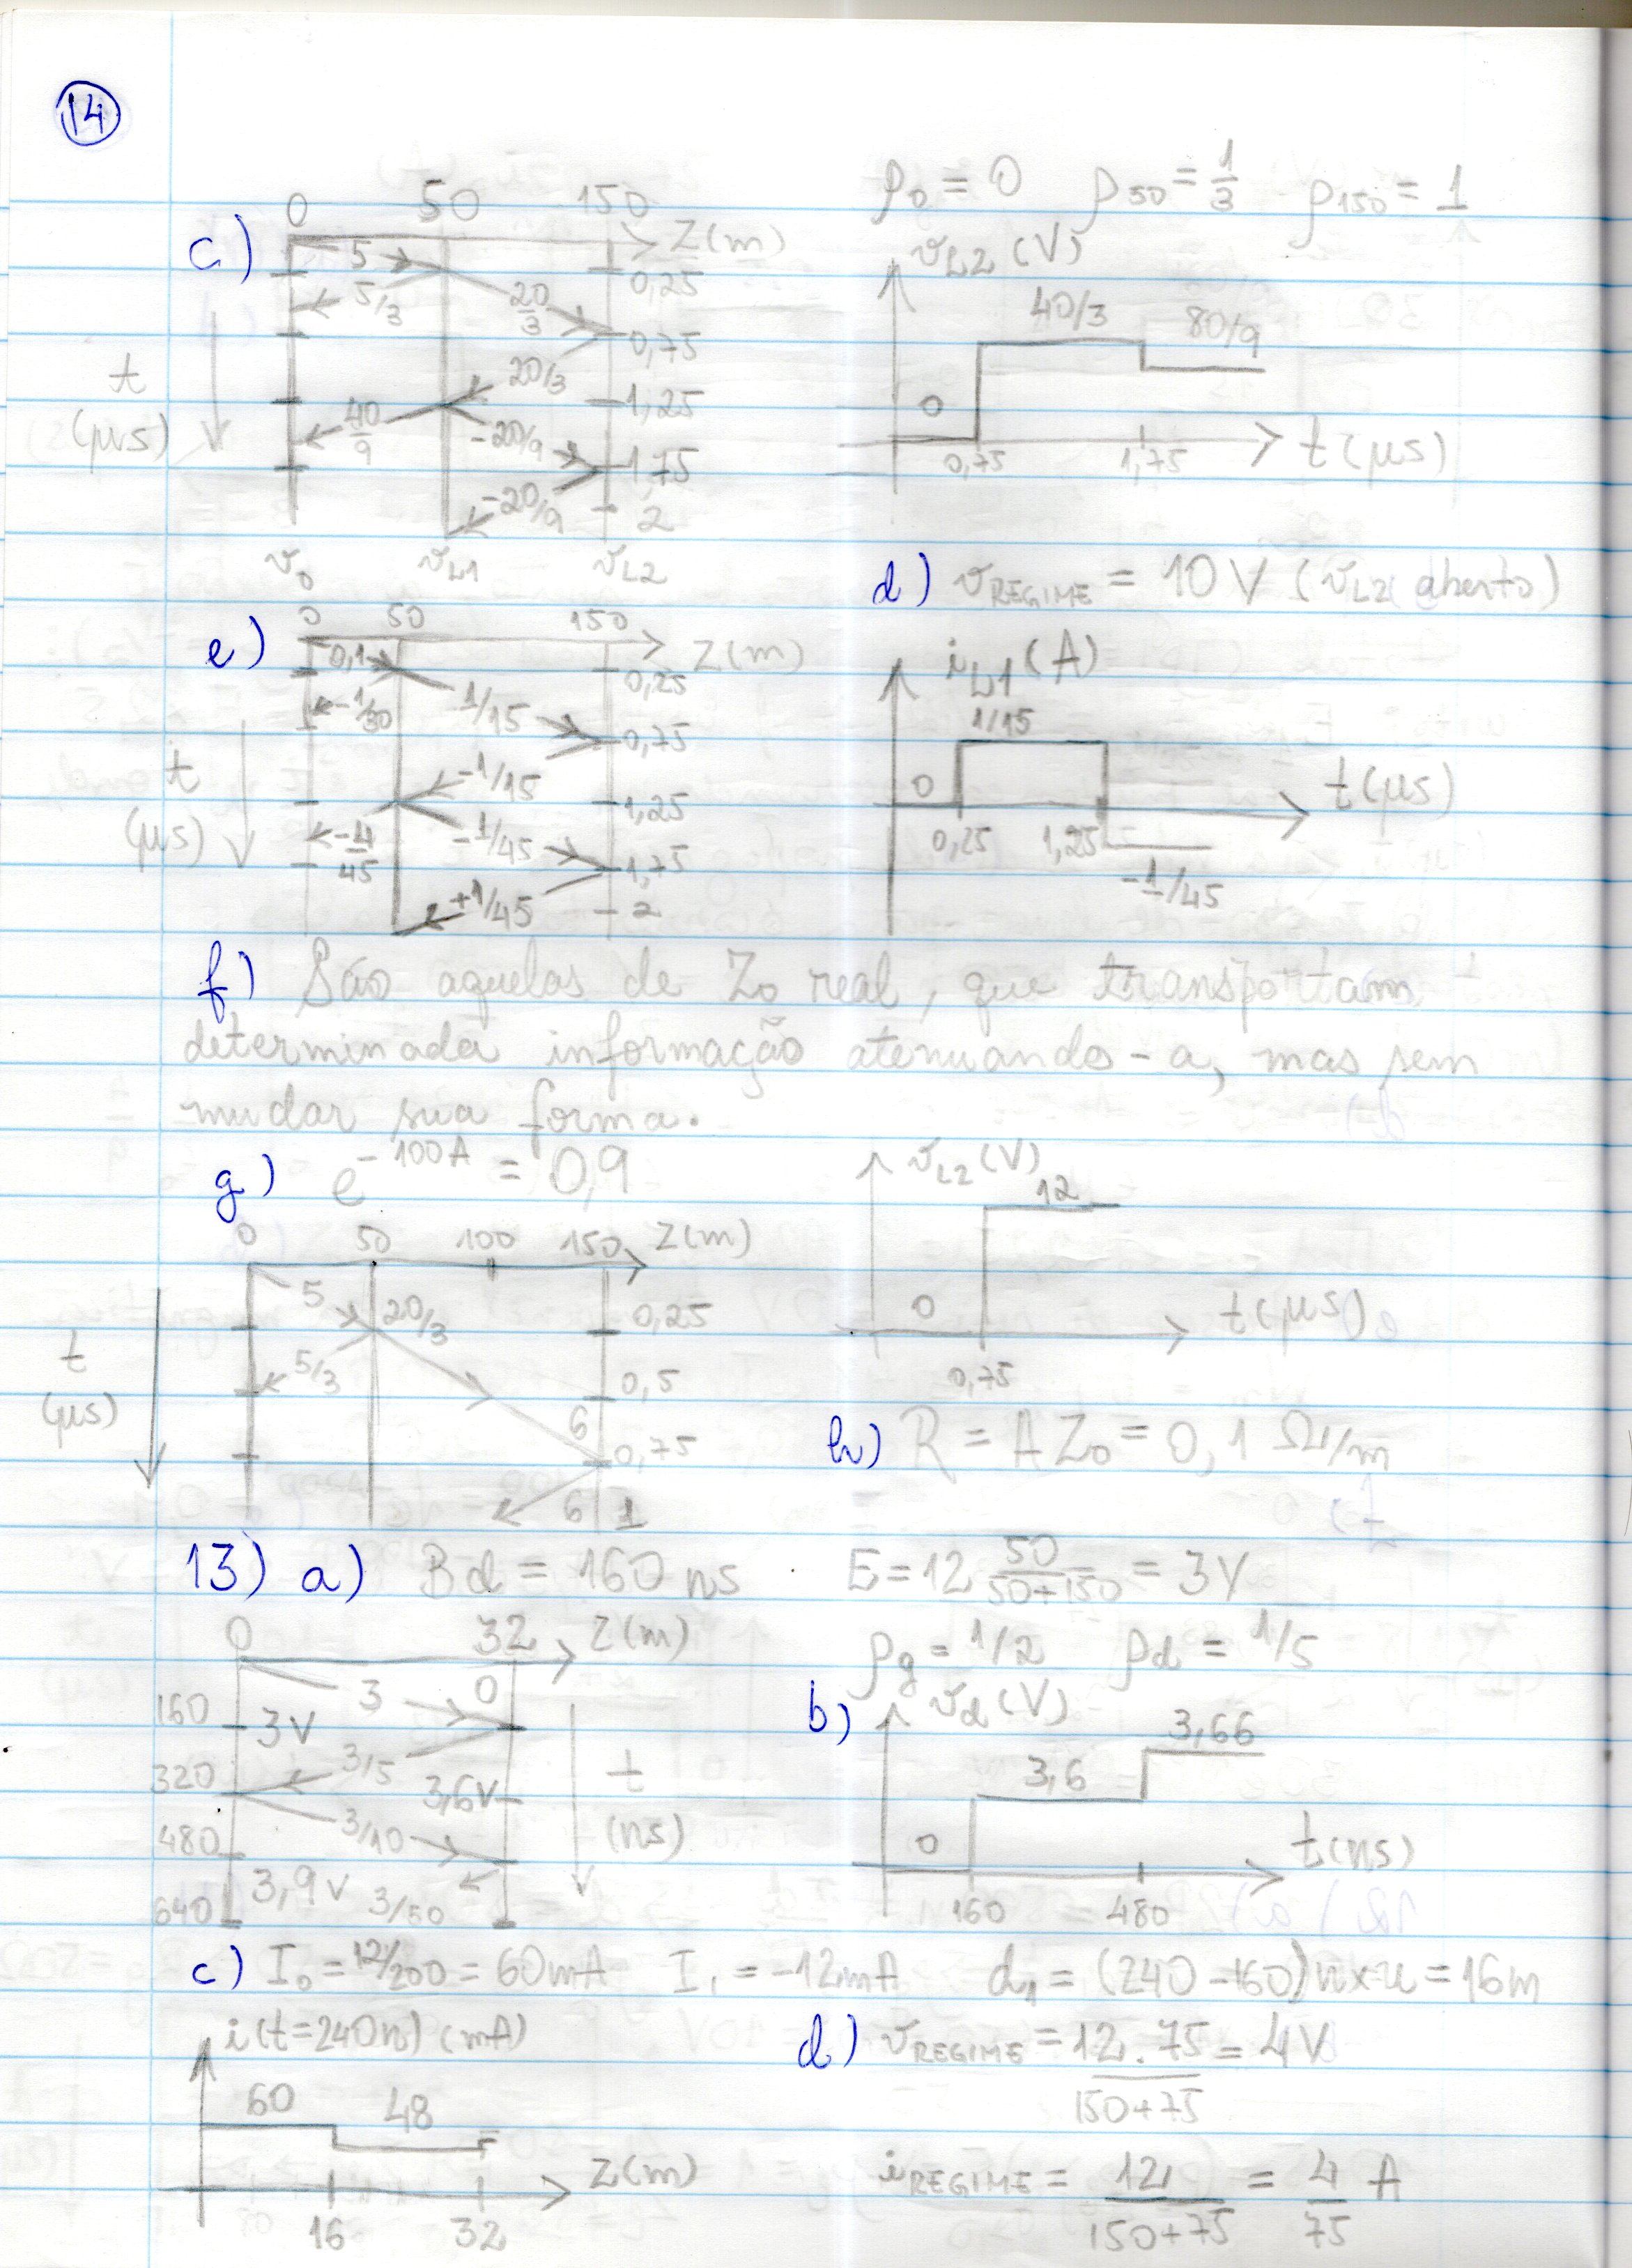 14
ρ₀ = 0 ρ₅₀ = 1/3 ρ₁₅₀ = 1
c)
0 50 150
Z(m)
5
5/3
20/3
20/3
40/9
-20/9
-20/9
0,25
0,75
1,25
1,75
2
t
(μs)
v₀ vL1 vL2
vL2 (V)
40/3
80/9
0
0,75 1,75
t(μs)
d) vREGIME = 10V (vL2 aberto)
e)
0 50 150
Z(m)
0,1
-1/30
1/15
-1/15
-4/45
-1/45
+1/45
0,25
0,75
1,25
1,75
2
t
(μs)
iL1 (A)
1/15
0
0,25 1,25
-1/45
t(μs)
f) São aquelas de Z₀ real, que transportam
determinada informação atenuando-a, mas sem
mudar sua forma.
g) e^-100A = 0,9
0 50 100 150 Z(m)
5
20/3
5/3
6
6
0,25
0,5
0,75
1
t
(μs)
vL2 (V)
12
0
0,75
t(μs)
h) R = A Z₀ = 0,1 Ω/m
13) a) Bd = 160 ns E = 12 50/(50+150) = 3V
ρg = 1/2 ρd = 1/5
0 32 Z(m)
3
0
160
3V
3/5
320
3,6V
3/10
480
3,9V
3/50
640
t
(ns)
b)
vd (V)
3,66
3,6
0
160 480
t(ns)
c) I₀ = 12/200 = 60mA I₁ = -12mA d₁ = (240-160)n×u = 16m
i(t=240n) (mA)
60 48
16 32
Z(m)
d) vREGIME = 12.75/(150+75) = 4V
iREGIME = 12/(150+75) = 4/75 A